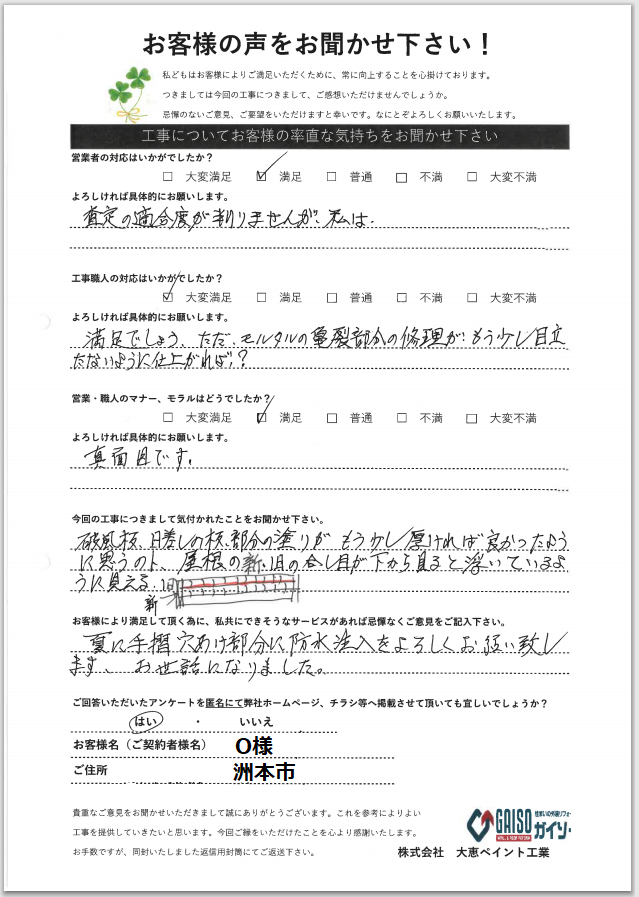 お客様の声をお聞かせ下さい！
私どもはお客様によりご満足いただくために、常に向上することを心掛けております。
つきましては今回の工事につきまして、ご感想いただけませんでしょうか。
忌憚のないご意見、ご要望をいただけますと幸いです。なにとぞよろしくお願いいたします。
工事についてお客様の率直な気持ちをお聞かせ下さい
営業者の対応はいかがでしたか？
□ 大変満足 ☑ 満足 □ 普通 □ 不満 □ 大変不満
よろしければ具体的にお願いします。
査定の適合度が判りませんが、私は.
工事職人の対応はいかがでしたか？
☑ 大変満足 □ 満足 □ 普通 □ 不満 □ 大変不満
よろしければ具体的にお願いします。
満足でしょう、ただ、モルタルの亀裂部分の修理が、もう少し目立
たないように仕上がれば、？
営業・職人のマナー、モラルはどうでしたか？
□ 大変満足 ☑ 満足 □ 普通 □ 不満 □ 大変不満
よろしければ具体的にお願いします。
真面目です.
今回の工事につきまして気付かれたことをお聞かせ下さい。
破風板、日差しの板部分の塗りが もう少し厚ければ良かったよう
に思うのと、屋根の新、旧の合し目が下から見ると浮いているよ
うに見える. 旧
新
お客様により満足して頂く為に、私共にできそうなサービスがあれば忌憚なくご意見をご記入下さい。
夏に手摺穴あけ部分に防水注入をよろしくお願い致し
ます、お世話になりました。
ご回答いただいたアンケートを匿名にて弊社ホームページ、チラシ等へ掲載させて頂いても宜しいでしょうか？
はい ・ いいえ
お客様名（ご契約者様名） O様
ご住所 洲本市
貴重なご意見をお聞かせいただきまして誠にありがとうございます。これを参考によりよい
工事を提供していきたいと思います。今回ご縁をいただけたことを心より感謝いたします。
お手数ですが、同封いたしました返信用封筒にてご返送下さい。
GAISO
住まいの外装リフォー
ガイソー
株式会社 大恵ペイント工業